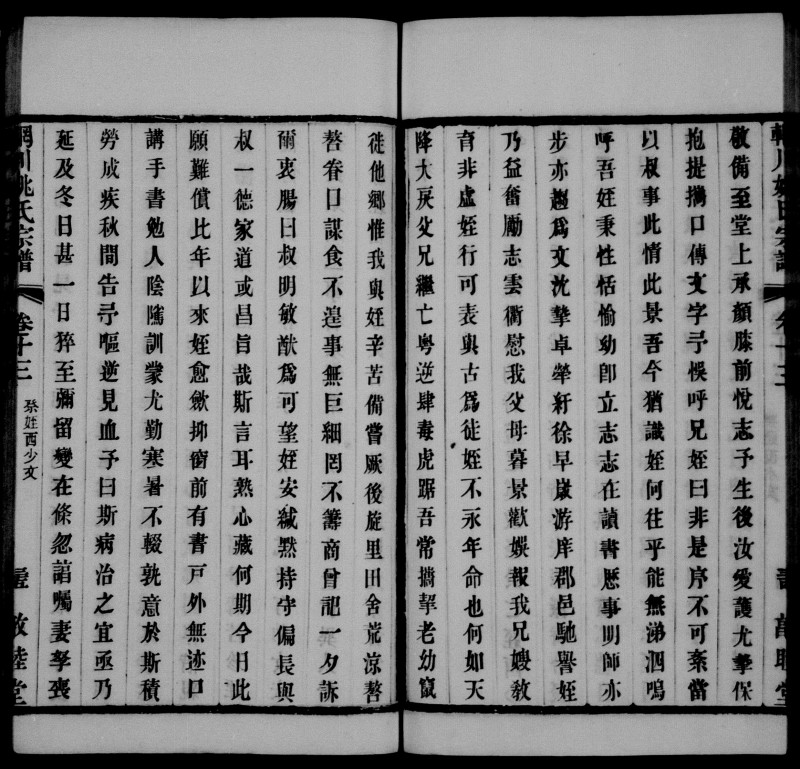 輞川姚氏宗譜 卷十三 敦睦堂
敬備至堂上承顏膝前悅志予生後汝愛護尤摯保
抱提攜口傳文字予悞呼兄姪曰非是序不可紊當
以叔事此情此景吾今猶識姪何往乎能無涕泗嗚
呼吾姪秉性恬愉幼卽立志志在讀書歷事明師亦
步亦趨爲文沈摯卓犖紆徐早歲游庠郡邑馳譽姪
乃益奮勵志雲衢慰我父母暮景歡娛報我兄嫂敎
育非虛姪行可表與古爲徒姪不永年命也何如天
降大戾父兄繼亡粵逆肆毒虎踞吾常攜挈老幼竄
徙他鄉惟我與姪辛苦備嘗厥後旋里田舍荒涼嗸
嗸眷口謀食不遑事無巨細罔不籌商曾記一夕訴
爾衷腸曰叔明敏猷爲可望姪安緘默持守偏長與
叔一德家道或昌旨哉斯言耳熟心藏何期今日此
願難償比年以來姪愈斂抑窗前有書戸外無迹口
講手書勉人陰隲訓蒙尤勤寒暑不輟孰意於斯積
勞成疾秋間告予嘔逆見血予曰斯病治之宜亟乃
延及冬日甚一日猝至彌留變在倏忽諠囑妻孥喪
輞川姚氏宗譜 卷十三 祭姪酉少文 壹 敦睦堂